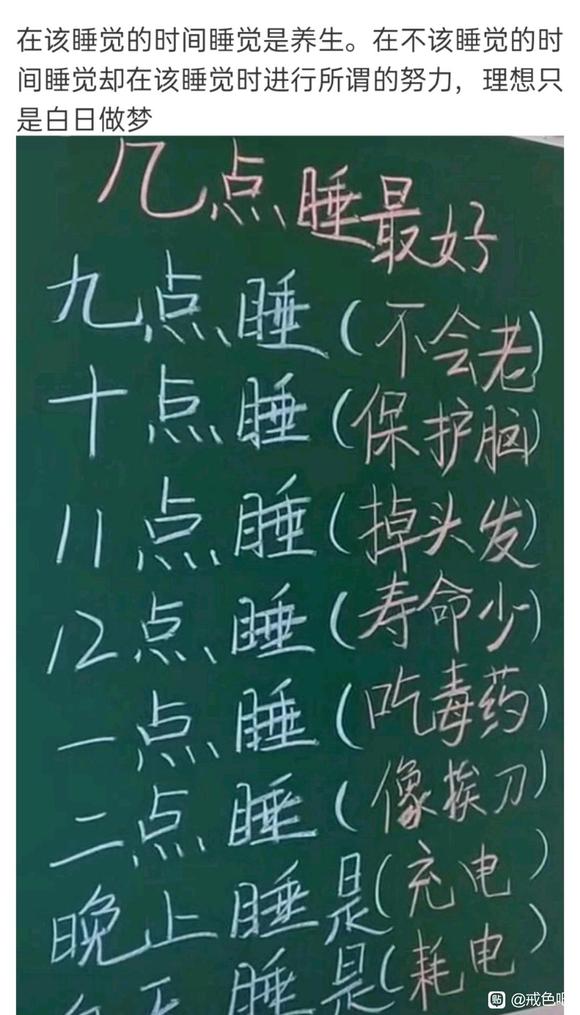 在该睡觉的时间睡觉是养生。在不该睡觉的时
间睡觉却在该睡觉时进行所谓的努力，理想只
是白日做梦
几点睡最好
九点睡(不会老)
十点睡(保护脑)
11点睡(掉头发)
12点睡(寿命少)
一点睡(吃毒药)
二点睡(像挨刀)
晚上睡是(充电)
睡是(耗电)
贴 @戒色吧